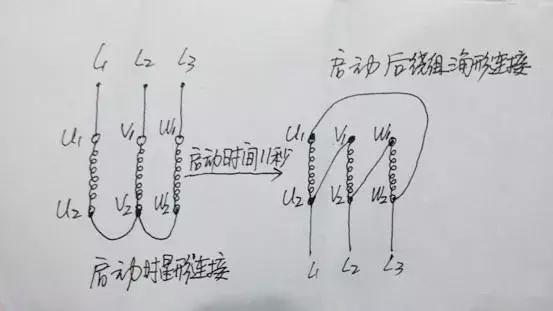 L1 L2 L3
启动后绕组三角形连接
U1 V1 W1
U1 V1 W1
启动时间11秒
U2 V2 W2
U2 V2 W2
启动时星形连接
L1 L2 L3